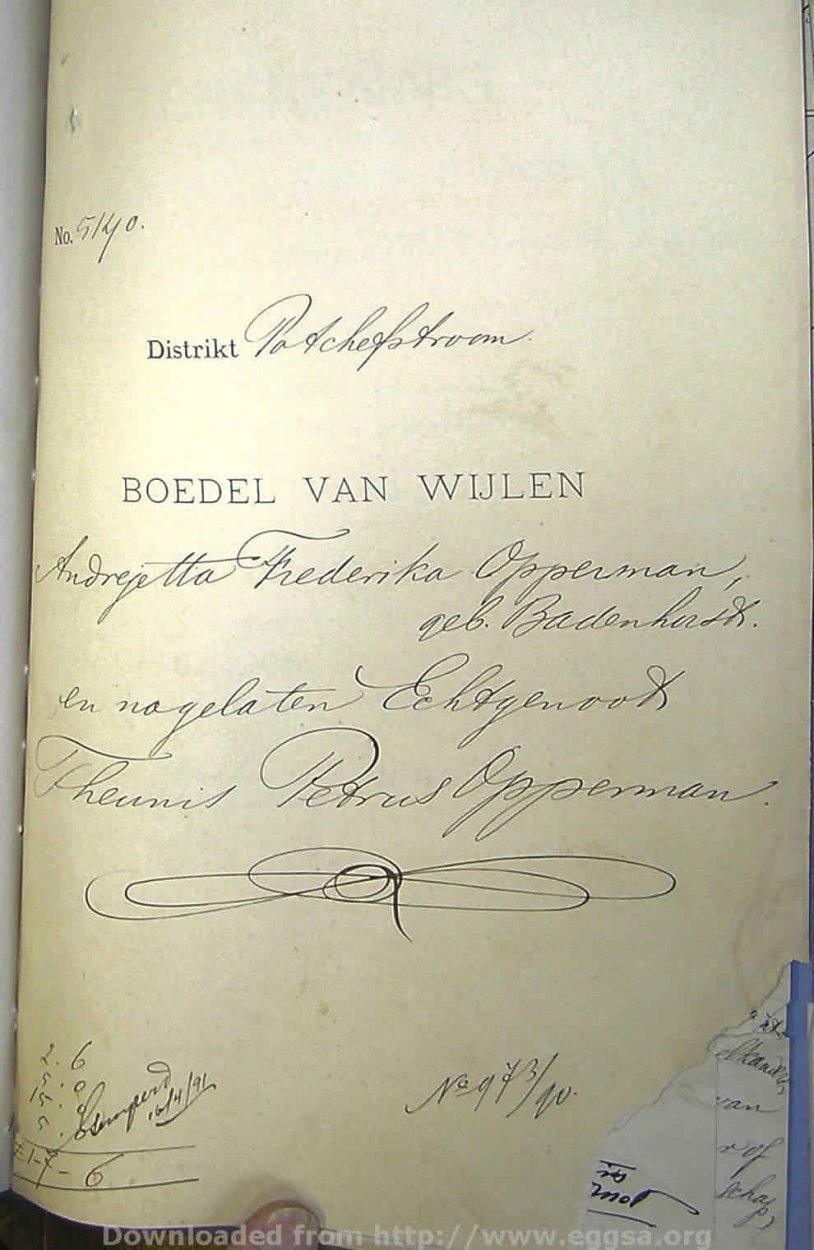 No. 5140.
Distrikt Potchefstroom.
BOEDEL VAN WIJLEN
Andrejetta Frederika Opperman,
geb. Badenhorst.
en nagelaten Echtgenoot
Theunis Petrus Opperman.
2. 6
5. 0
15.
5.
Stempers 16/4/91
£1-7-6
No 973/90.
van
r of
schap,
Downloaded from http://www.eggsa.org